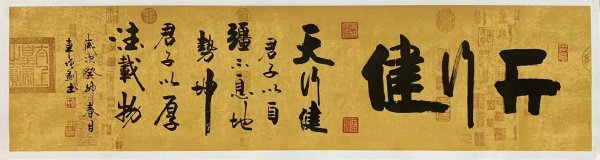 天行健
天行健
君子以自
彊不息地
勢坤
君子以厚
德載物
歲次癸卯春月
書